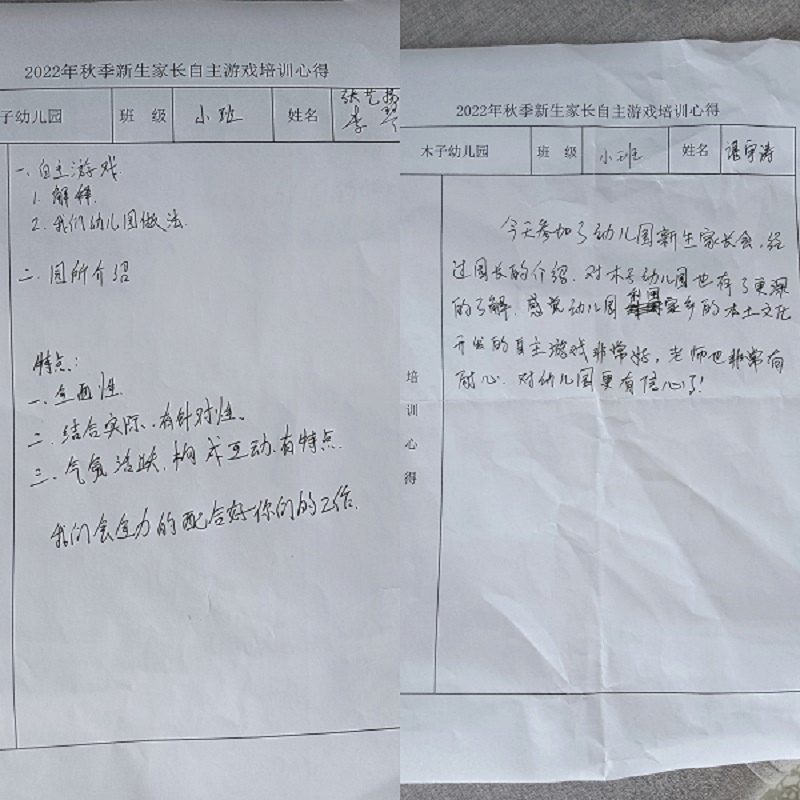 2022年秋季新生家长自主游戏培训心得
子幼儿园 班 级 小班 姓名 张艺
李
一、自主游戏
1. 解释.
2. 我们幼儿园做法.
二. 园所介绍
特点:
一. 全面性.
二. 结合实际、有针对性。
三. 气氛活跃. 构成互动. 有特点.
我们会全力的配合好你们的工作.
2022年秋季新生家长自主游戏培训心得
木子幼儿园 班 级 小班 姓名 谌宇涛
今天参加了幼儿园新生家长会, 经
过园长的介绍. 对木子幼儿园也有了更深
的了解. 感觉幼儿园利用家乡的本土文化
开发的自主游戏非常好, 老师也非常有
耐心. 对幼儿园更有信心了!
培
训
心
得